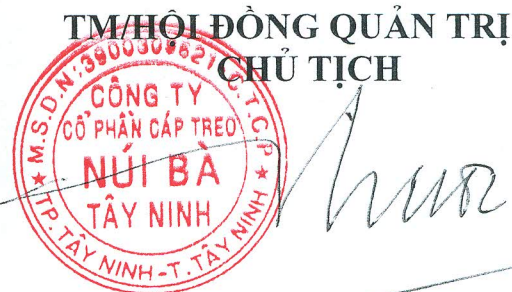 TM/HỘI ĐỒNG QUẢN TRỊ
CHỦ TỊCH
M.S.D.N:3900309621-C.T.C.P
CÔNG TY
CỔ PHẦN CÁP TREO
NÚI BÀ
TÂY NINH
TP.TÂY NINH-T.TÂY NINH